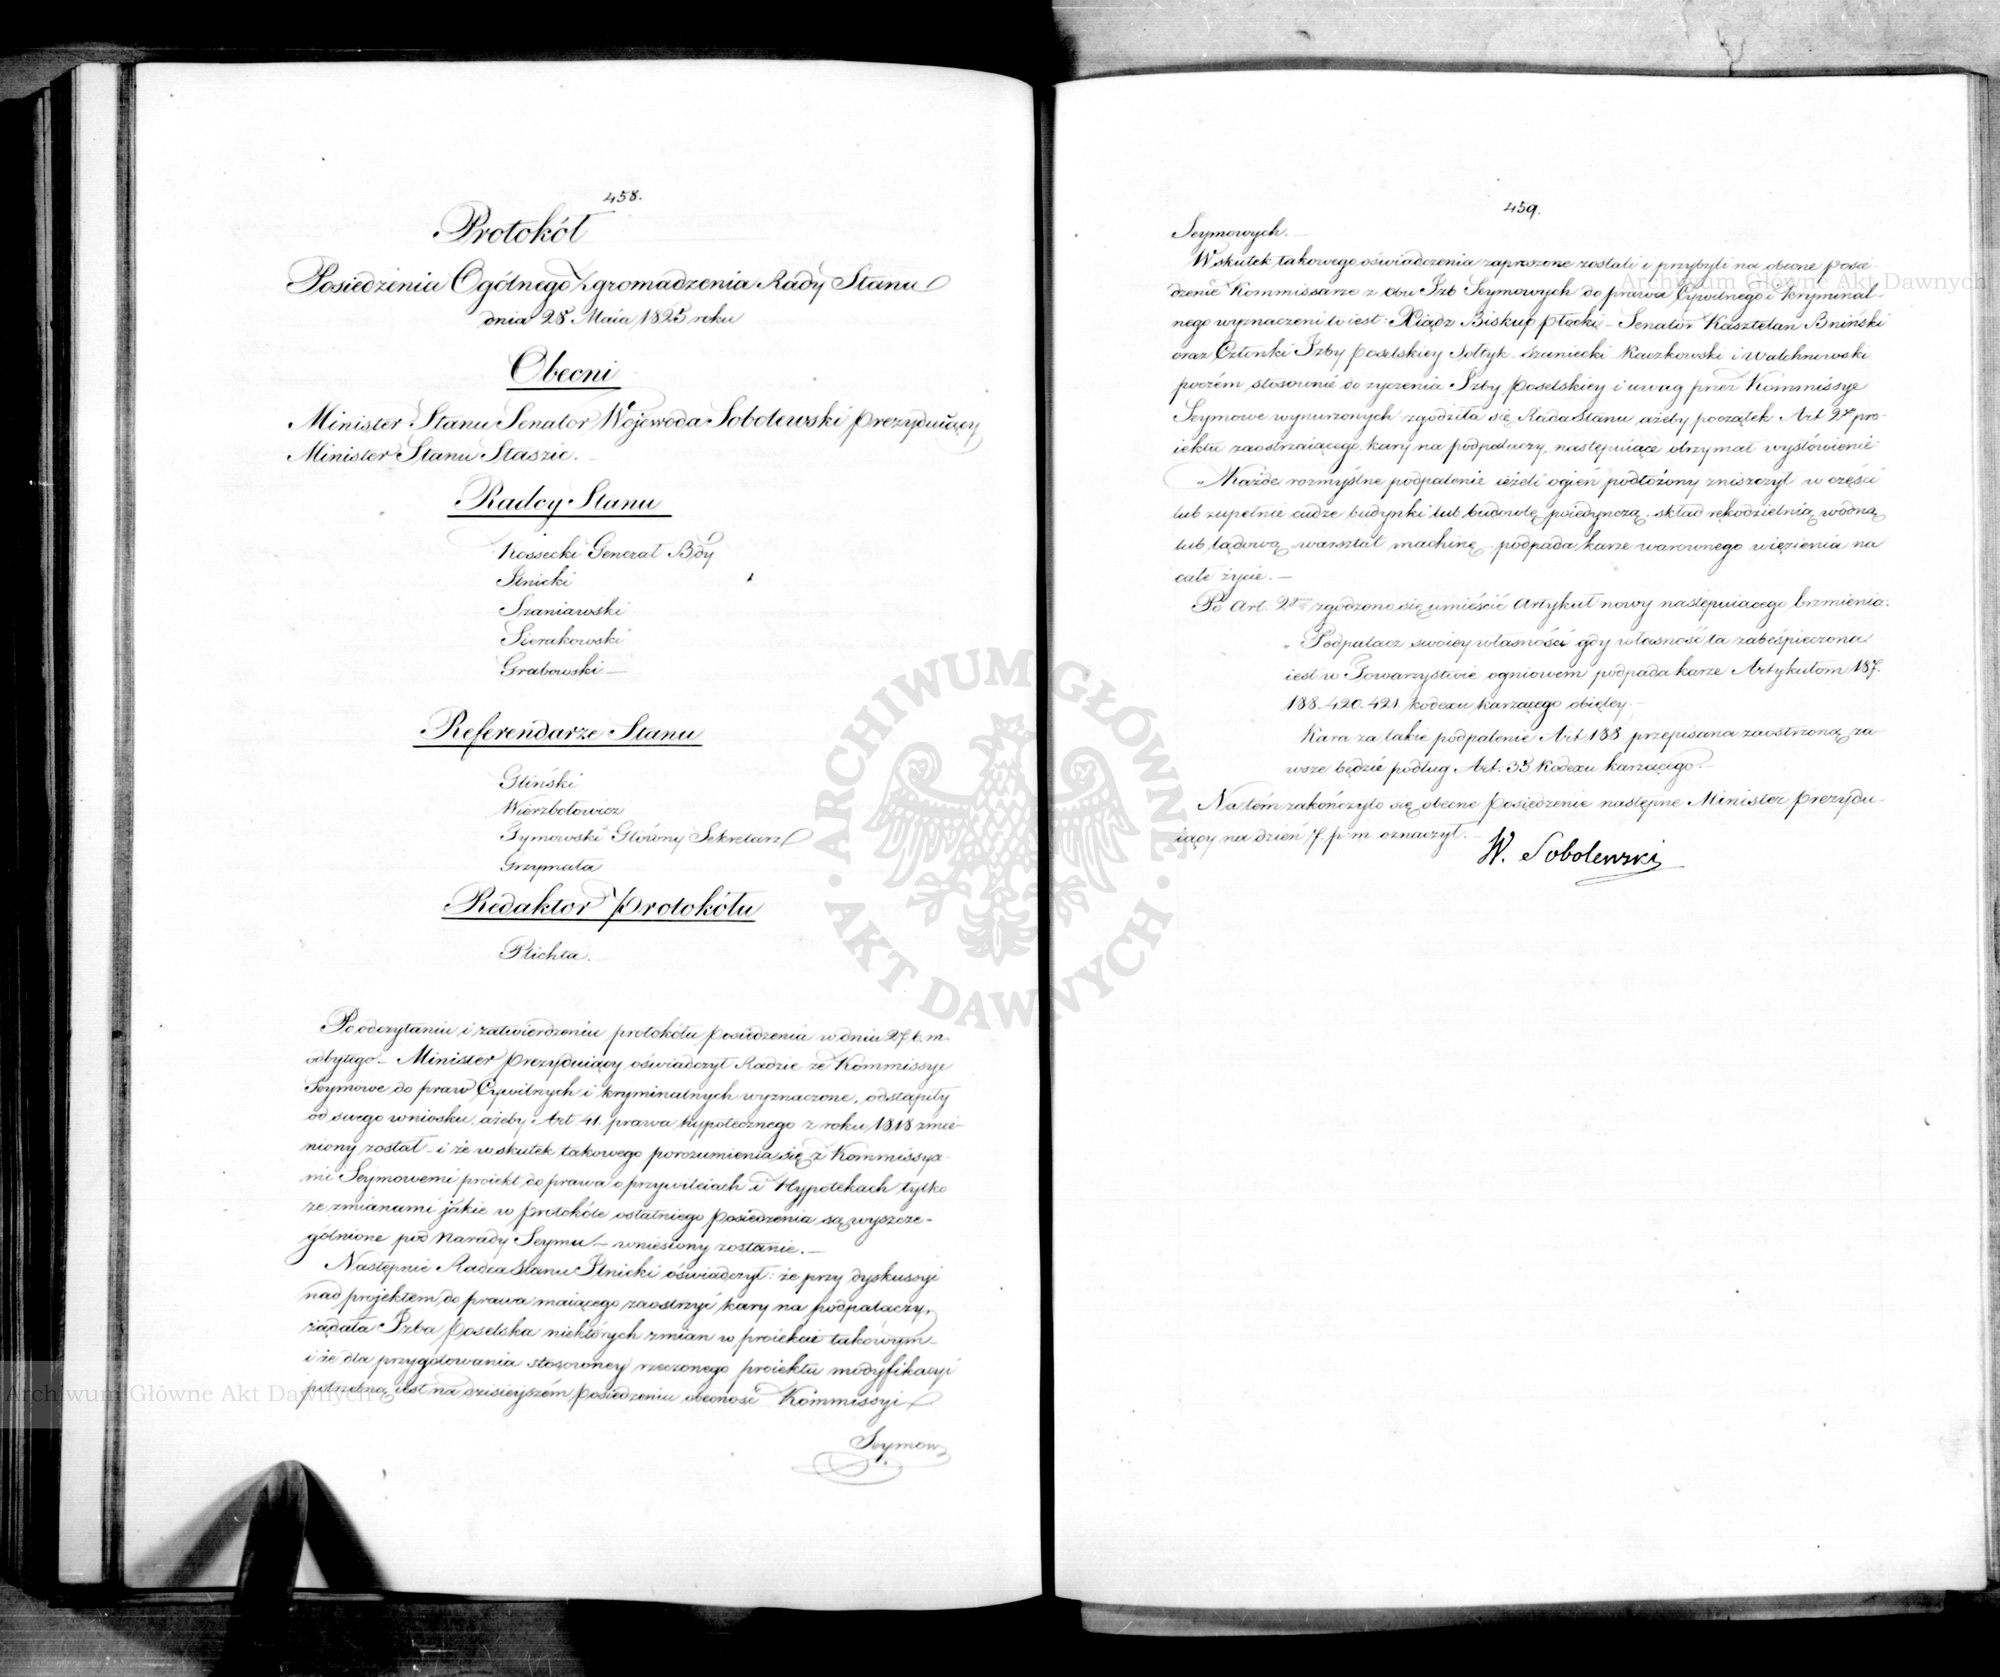 458.
Protokół
Posiedzenia Ogólnego Zgromadzenia Rady Stanu
dnia 28 Maia 1825 roku
Obecni
Minister Stanu Senator Wojewoda Sobolewski Prezyduiący
Minister Stanu Staszic.
Radcy Stanu
Kossecki Generał Bdy
Ilnicki
Szaniawski
Sierakowski
Grabowski
Referendarze Stanu
Gliński
Wierzbołowicz
Tymowski Główny Sekretarz
Grzymała
Redaktor Protokółu
Plichta.
Po odczytaniu i zatwierdzeniu protokółu Posiedzenia w dniu 27 b. m.
odbytego – Minister Prezyduiący oświadczył Radzie że Kommissye
Seymowe do praw Cywilnych i kryminalnych wyznaczone, odstąpiły
od swego wniosku, ażeby Art. 41. prawa hypotecznego z roku 1818 zmie-
niony został – i że w skutek takowego porozumienia się z Kommissya-
mi Seymowemi proiekt do prawa o przywileiach i Hypotekach tylko
ze zmianami jakie w protokóle ostatniego Posiedzenia są wyszcze-
gólnione pod Narady Seymu – wniesiony zostanie. –
Następnie Radca Stanu Ilnicki oświadczył: że przy dyskussyi
nad projektem do prawa maiącego zaostrzyć kary na podpalaczy,
żądała Izba Poselska niektórych zmian w proiekcie takowym –
i że dla przygotowania stosowney rzeczonego proiektu modyfikacyi
potrzebną iest na dzisieyszém Posiedzeniu obecność Kommissyi
Seymow
459.
Seymowych. –
W skutek takowego oświadczenia zaproszone zostali i przybyli na obecne posie-
dzenie Kommissarze z obu Izb Seymowych do prawa Cywilnego i kryminal-
nego wyznaczeni to iest: Xiądz Biskup Płocki – Senator Kasztelan Bniński
oraz Członki Izby Poselskiey Sołtyk – Szaniecki – Kaczkowski i Walchnowski
poczém stosownie do życzenia Izby Poselskiey i uwag przez Kommissye
Seymowe wynurzonych zgodziła się Rada Stanu ażeby początek Art 2go pro-
iektu zaostrzaiącego kary na podpalaczy, następuiące otrzymał wysłowienie:
„Każde rozmyślne podpalenie ieżeli ogień podłożony zniszczył w części
lub zupełnie cudze budynki lub budowlę poiedynczą, skład rękodzielnią wodną
lub lądową warsztat machinę – podpada karze warownego więzienia na
całe życie. –
Po Art: 2gim zgodzono się umieścić Artykuł nowy następuiącego brzmienia:
„Podpalacz swoiey własności gdy własność ta zabespieczona
iest w Towarzystwie ogniowem podpada karze Artykułom 187.
188 – 420 – 421. kodexu karzącego obiętey. –
Kara za takie podpalenie Art 188. przepisana zaostrzoną za-
wsze będzie podług Art. 33 Kodexu karzącego. –
Na tém zakończyło się obecne Posiedzenie następne Minister Prezydu-
iący na dzień 7. p. m. oznaczył. –
W. Sobolewski
ARCHIWUM GŁÓWNE
AKT DAWNYCH
Archiwum Główne Akt Dawnych
Archiwum Główne Akt Dawnych